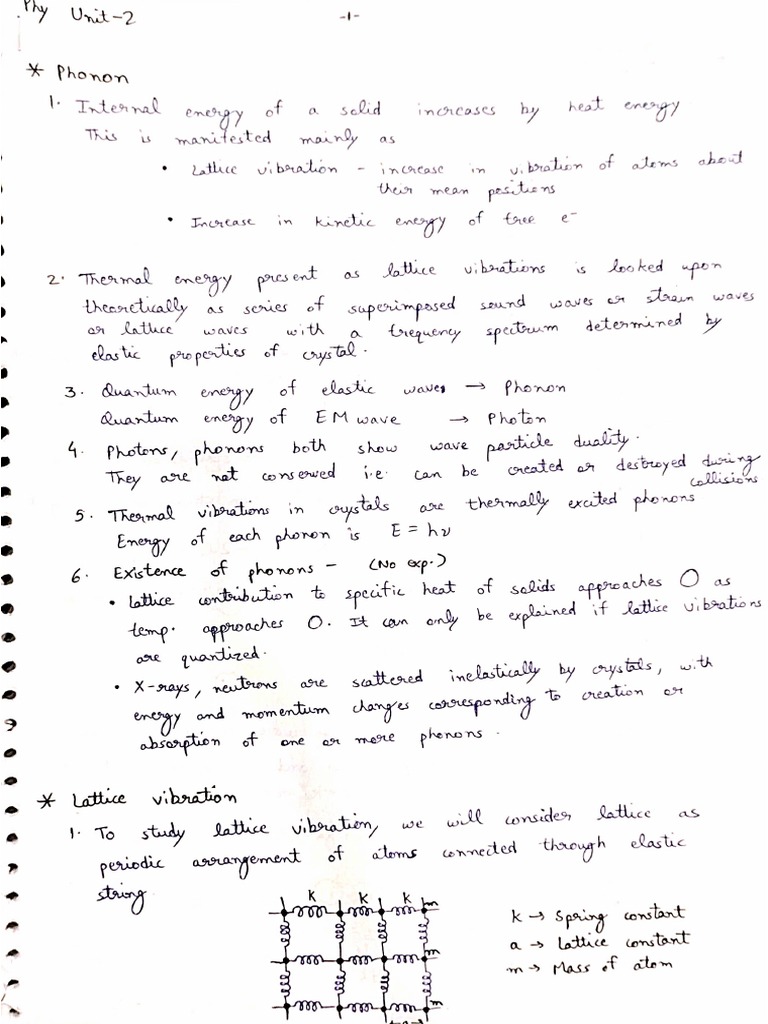 Phy Unit-2
-1-
* Phonon
1. Internal energy of a solid increases by heat energy
This is manifested mainly as
• Lattice vibration - increase in vibration of atoms about
their mean positions
• Increase in kinetic energy of free e⁻
2. Thermal energy present as lattice vibrations is looked upon
theoretically as series of superimposed sound waves or strain waves
or lattice waves with a frequency spectrum determined by
elastic properties of crystal.
3. Quantum energy of elastic waves → Phonon
Quantum energy of EM wave → Photon
4. Photons, phonons both show wave particle duality.
They are not conserved i.e. can be created or destroyed during
collisions
5. Thermal vibrations in crystals are thermally excited phonons
Energy of each phonon is E = hν
6. Existence of phonons - (No exp.)
• Lattice contribution to specific heat of solids approaches 0 as
temp. approaches 0. It can only be explained if lattice vibrations
are quantized.
• X-rays, neutrons are scattered inelastically by crystals, with
energy and momentum changes corresponding to creation or
absorption of one or more phonons.
* Lattice vibration
1. To study lattice vibration, we will consider lattice as
periodic arrangement of atoms connected through elastic
string
k k k m
m
m
a
k → Spring constant
a → Lattice constant
m → Mass of atom